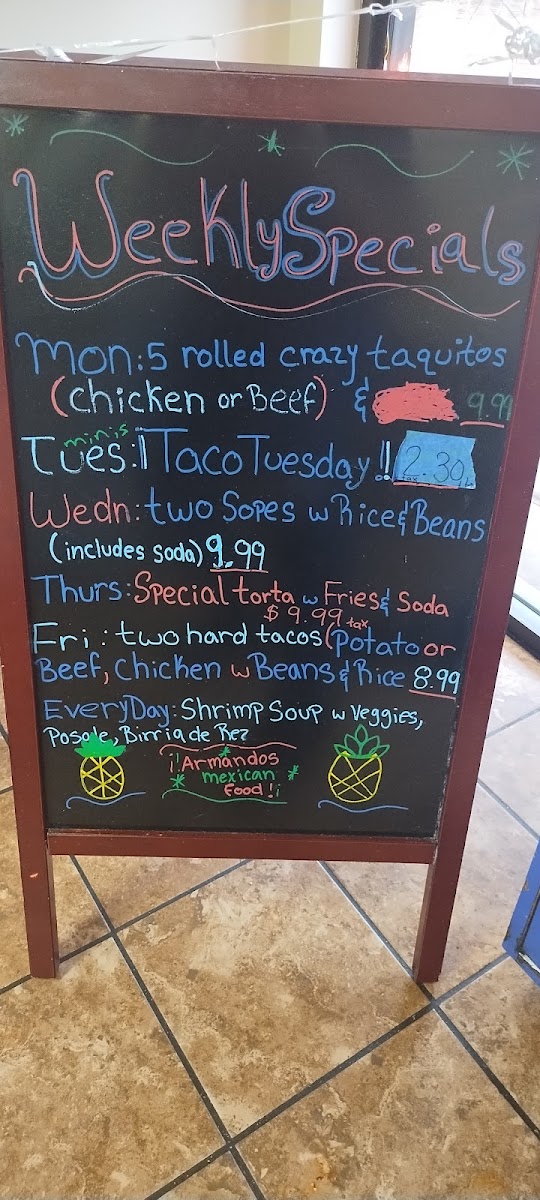 Weekly Specials
Mon: 5 rolled crazy taquitos
(Chicken or Beef) & 9.99
minis
Tues: Taco Tuesday!! 2.39
tax
Wedn: two Sopes w Rice & Beans
(includes soda) 9.99
Thurs: Special torta w Fries & Soda
$9.99 tax
Fri.: two hard tacos (Potato or
Beef, Chicken w Beans & Rice 8.99
EveryDay: Shrimp Soup w Veggies,
Posole, Birria de Rez
¡¡Armandos
mexican
Food!¡